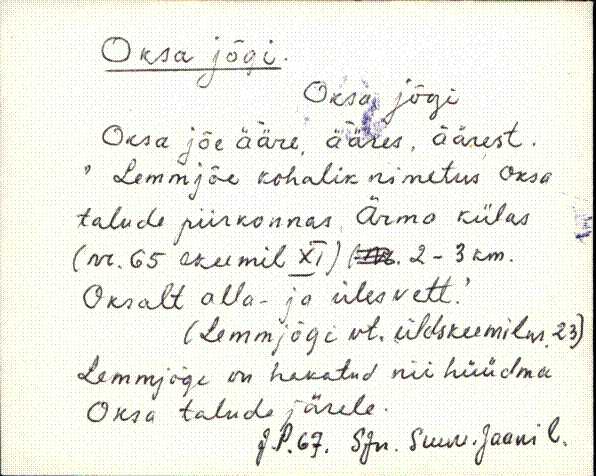 Oksa jõgi.
Oksa jõgi
Oksa jõe ääre, ääres, äärest.
' Lemmjõe kohalik nimetus Oksa
talude piirkonnas Ärmo külas
(nr. 65 skeemil XI) ( 2-3 km.
Oksalt alla- ja ülesvett.'
(Lemmjõgi vt. üldskeemil nr. 23)
Lemmjõge on hakatud nii hüüdma
Oksa talude järele.
J.P. 67. Sjn. Suure-Jaani l.